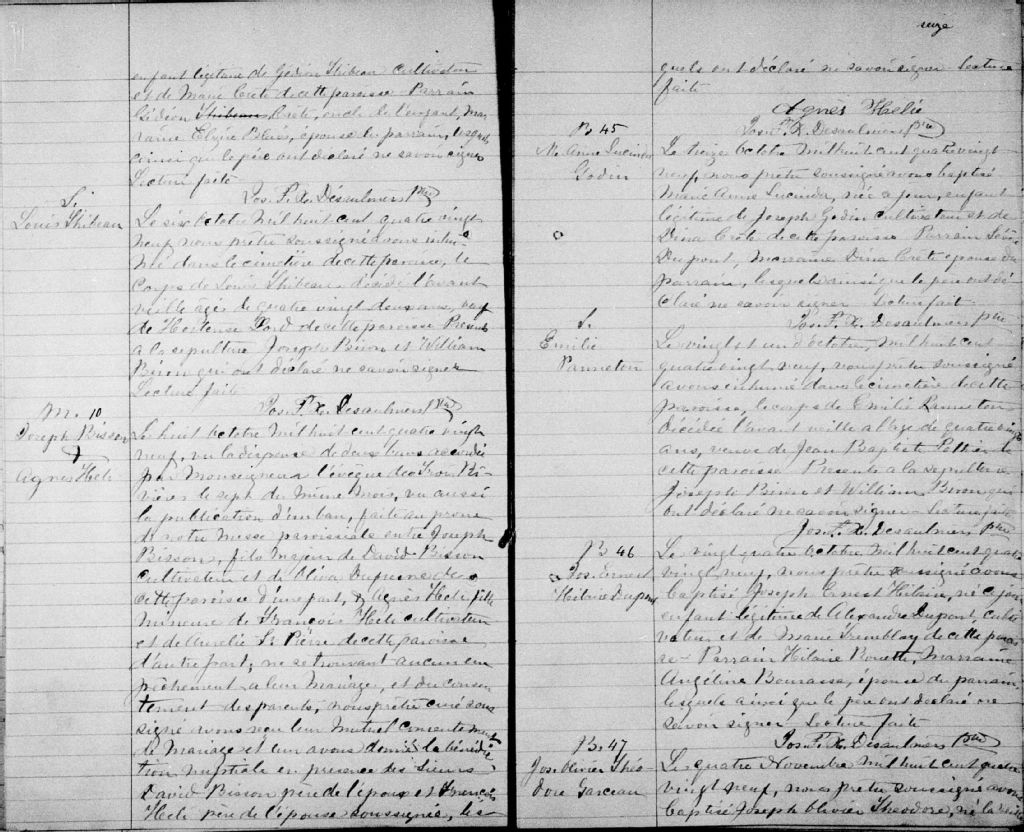 enfant légitime de Gédéon Thibeau cultivateur
et de Marie Crête de cette paroisse Parrain
Gédéon Crête, oncle de l'enfant, mar
raine Elzire, épouse du parrain, lesquels
ainsi que le père ont déclaré ne savoir signer
Lecture faite
Jos. F. X. Désaulniers Ptre
S.
Louis Thibeau
Le six Octobre mil huit cent quatre vingt
neuf nous prêtre soussigné avons inhu
mé dans le cimetière de cette paroisse, le
corps de Louis Thibeau décédé l'avant
veille âgé de quatre vingt deux ans, veuf
de Hortense Lord de cette paroisse Présents
à la sépulture Joseph Biron et William
Biron qui ont déclaré ne savoir signer
Lecture faite
Jos. F. X. Desaulniers Ptre
M. 10
Joseph Bisson
&
Agnes Helie
Le huit Octobre mil huit cent quatre vingt
neuf, vu la dispense de deux bans accordée
par Monseigneur l'évêque de Trois Ri
vières le sept du même mois, vu aussi
la publication d'un ban, faite au prone
de notre messe paroissiale entre Joseph
Bisson, fils majeur de David Bisson
cultivateur et de Oliva de
cette paroisse d'une part, & Agnès Helie fille
mineure de François Helie cultivateur
et de Aurélie St Pierre de cette paroisse
d'autre part; ne se trouvant aucun em
pêchement à leur mariage, et du consen
tement des parents, nous prêtre curé sous
signé avons reçu leur mutuel consentement
de mariage et leur avons donné la bénédic
tion nuptiale en présence des sieurs
David Bisson père de l'époux et François
Helie père de l'épouse soussignée, les
seize
quels ont déclaré ne savoir signer Lecture
faite
Agnès Helie
Jos. F. X. Desaulniers Ptre
B 45
M. Anne Lucinda
Godin
Le treize Octobre mil huit cent quatre vingt
neuf, nous prêtre soussigné avons baptisé
Marie Anne Lucinda, née ce jour, enfant
légitime de Joseph Godin cultivateur et de
Dina Crête de cette paroisse Parrain
Dupont, Marraine Dina Crête épouse du
parrain, lesquels ainsi que le père ont dé
claré ne savoir signer Lecture fait
Jos. F. X. Desaulniers ptre
S.
Emilie
Panneton
Le vingt et un d'Octobre, mil huit cent
quatre vingt neuf, nous prêtre soussigné
avons inhumé dans le cimetière de cette
paroisse, le corps de Emilie Panneton
décédée l'avant veille à l'âge de quatre vingt
ans, veuve de Jean Baptiste de
cette paroisse Présents à la sépulture
Joseph Biron et William Biron qui
ont déclaré ne savoir signer Lecture faite
Jos. F. X. Desaulniers ptre
B 46
Jos. Ernest
Hilaire Dupont
Le vingt quatre Octobre mil huit cent quatre
vingt neuf, nous prêtre soussigné avons
baptisé Joseph Ernest Hilaire, né ce jour
enfant légitime de Alexandre Dupont, culti
vateur et de Marie Tremblay de cette parois
se Parrain Hilaire Marraine
Angéline Bourassa, épouse du parrain
lesquels ainsi que le père ont déclaré ne
savoir signer Lecture faite
Jos. F. X. Desaulniers Ptre
B. 47
Jos. Olivier Théo
dore Garceau
Le quatre Novembre mil huit cent quatre
vingt neuf, nous prêtre soussigné avons
baptisé Joseph Olivier Théodore, né la veille